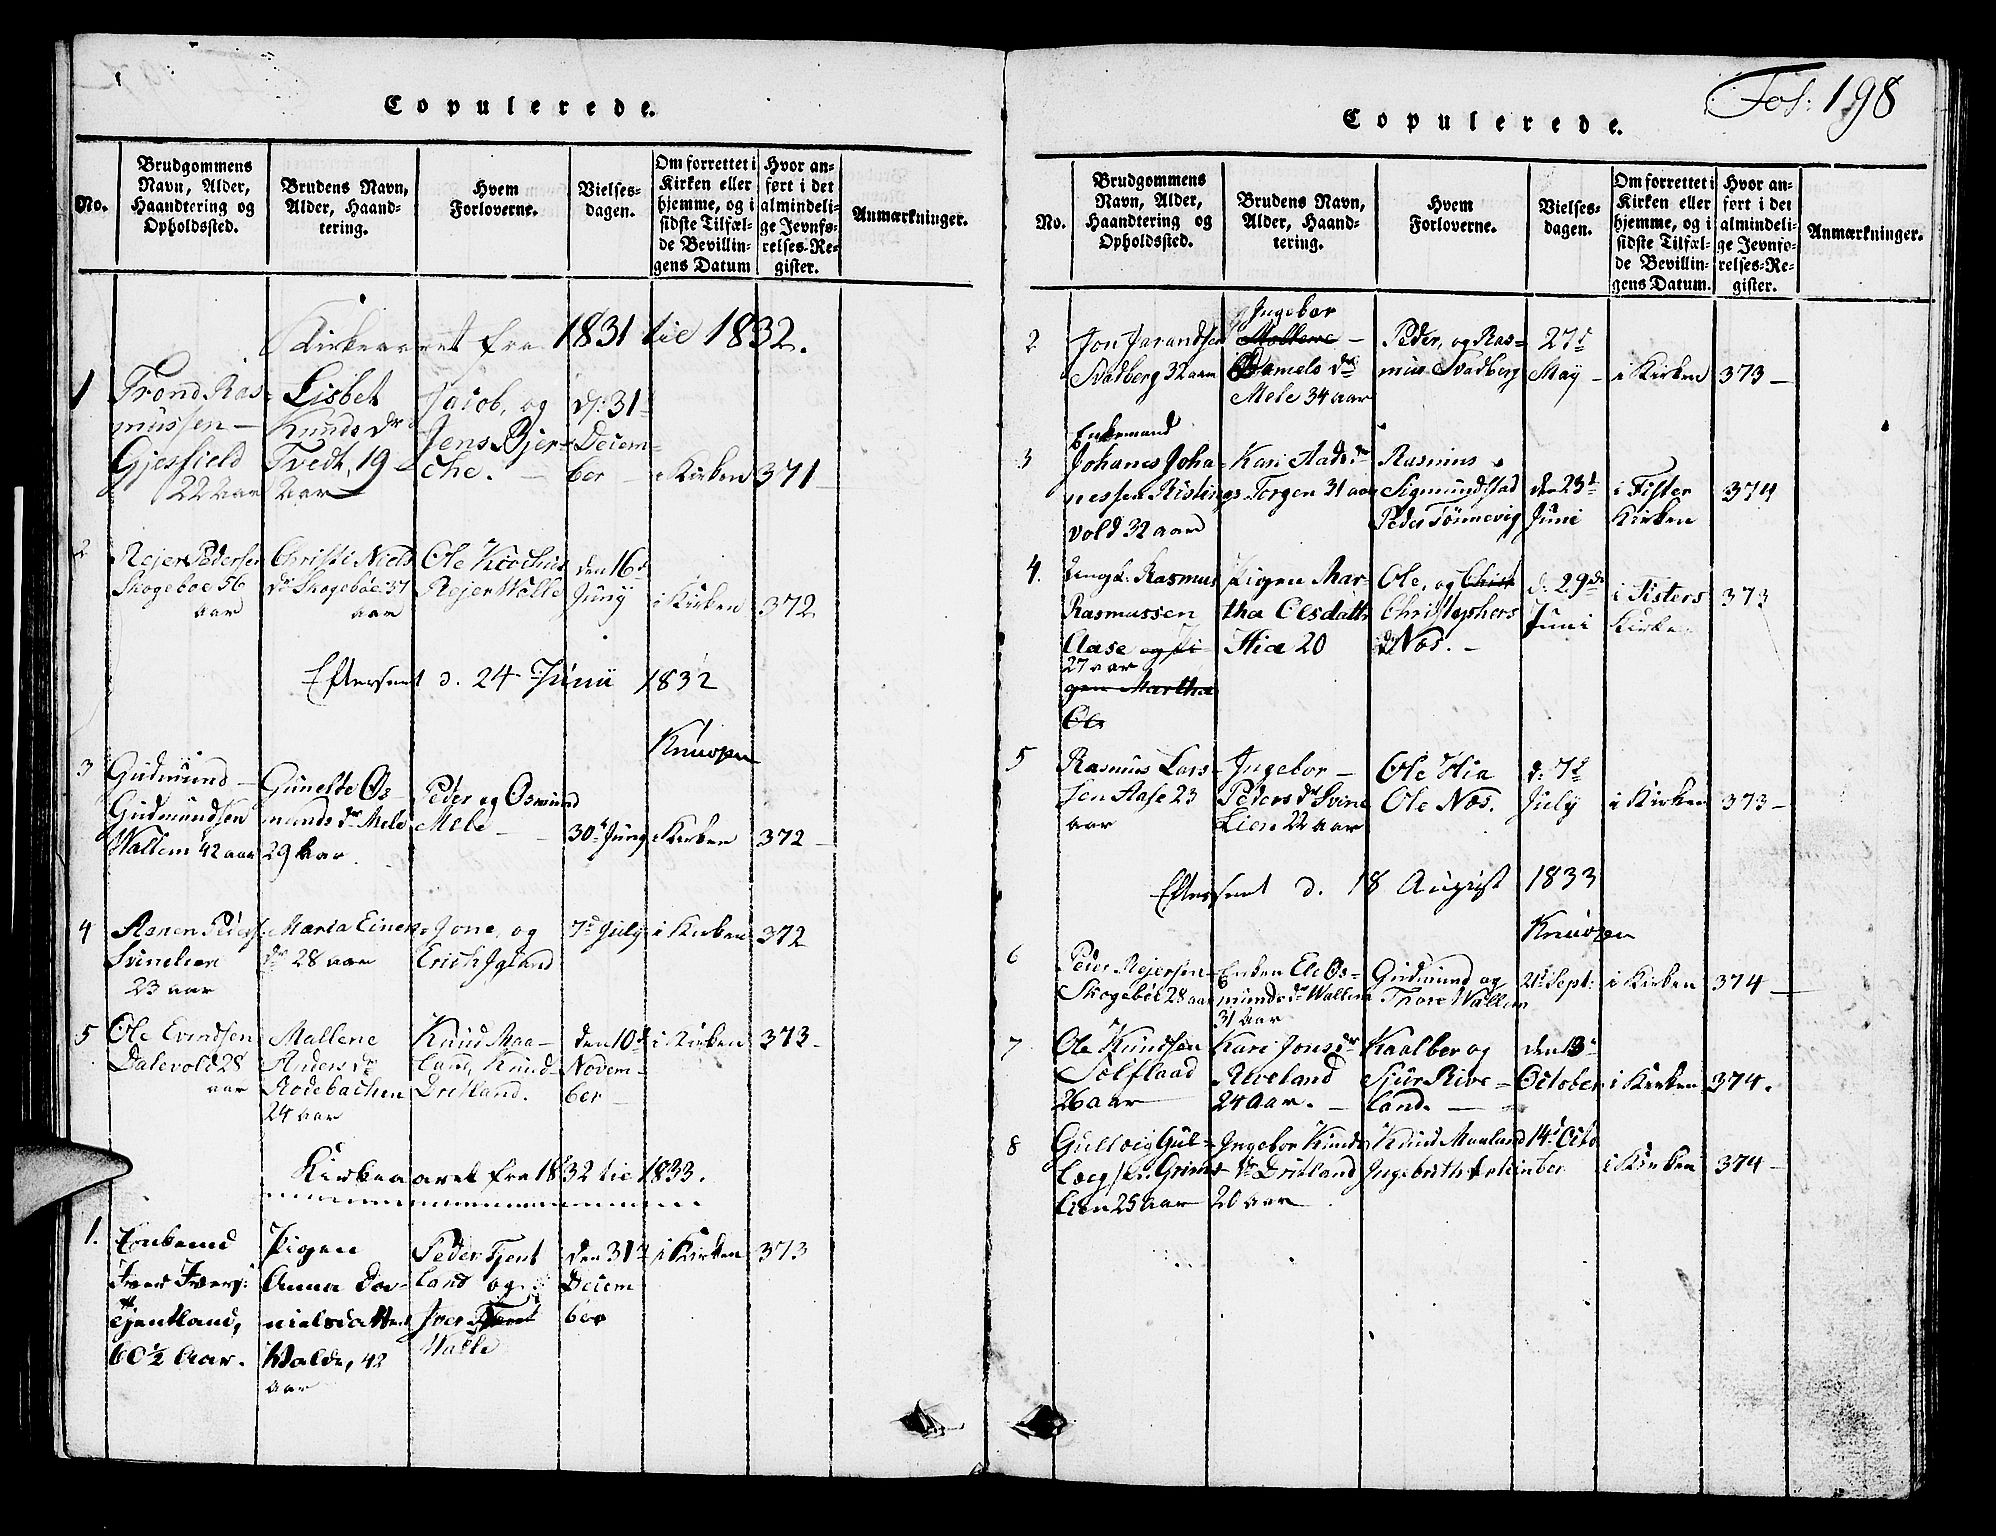 Copulerede.
No.
Brudgommens
Navn, Alder,
Haandtering og
Opholdssted.
Brudens Navn,
Alder, Haand-
tering.
Hvem
Forloverne.
Vielses-
dagen.
Om forrettet i
Kirken eller
hjemme, og i
sidste Tilfæl-
de Bevillin-
gens Datum
Hvor an-
ført i det
almindeli-
ge Jevnfø-
relses-Re-
gister.
Anmærkninger.
Kirkeaaret fra 1831 til 1832.
1
Trond Ras-
mussen -
Gjesfield
22 Aar
Lisbet
Knuds Dr
Tvedt, 19
Aar
Jacob, og
Jens Bjer-
che. -
d: 31
Decem-
ber -
i Kirken
371 -
2
Rejer Pedersen
Skogeboe 56
aar
Christi Niels
Dr Skogeböe 37
aar
Ole
Rejer Wolle
den 16d
Juny
i Kirken
372
Efterseet d. 24 Junii 1832
Knudzen
3
Gudmund -
Gudmundsen
Wallem 42 aar
Gunelle Os-
munds dr Mele
29 Aar.
Peder og Osmund
Mele -
30d Juny
i Kirken
372 -
4
Aanen Peders:
Svinelien
23 aar
Maria Einers
dr 28 aar
Jone, og
Erich Igland
7d July
i Kirken
372
5
Ole Evindsen
Dalevold 28
aar
Mallene
Anders dr
Rodebachen
24 aar
Knud Maa-
land, Knud
Dritland.
den 10d
Novem-
ber -
i Kirken
373 -
Kirkeaaret fra 1832 til 1833.
1.
Enkemd
Iver Ivers:
Tjentland,
60½ Aar.
Pigen
Anna Da-
nielsdatter
Walde, 42
aar
Peder Tjent
land og
Iver
Walle
den 31d
Decem
ber
i Kirken
373
Fol: 198
Copulerede.
No.
Brudgommens
Navn, Alder,
Haandtering og
Opholdssted.
Brudens Navn,
Alder, Haand-
tering.
Hvem
Forloverne.
Vielses-
dagen.
Om forrettet i
Kirken eller
hjemme, og i
sidste Tilfæl-
de Bevillin-
gens Datum.
Hvor an-
ført i det
almindeli-
ge Jevnfø-
relses-Re-
gister.
Anmærkninger.
2
Jon Jarandsen
Svadberg 32 aar
Ingebor
Mallene -
Daniels dr
Mele 34 aar
Peder, og Ras-
mus Svadberg
27d
May -
i Kirken
373 -
3
Enkemand
Johanes Joha-
nessen Ristings
vold 32 aar
Kari Aads dr
Torgen 31 aar
Rasmus
Sigmundstad
Peder Tönnevig
den 23d
Juni
i Fister
Kirken
374
4.
Ungk: Rasmus
Rasmussen
Aase og Pi-
27 aar
gen Martha
Ols
Pigen Mar-
tha Olsdattr
Hia 20
Ole, og Chist
Christophers
Næs. -
d: 29de
Juni
i Fisters
Kirke
373
5
Rasmus Lars-
sen Aase 23
aar
Ingebor -
Peders dr Svine
Lien 22 aar
Ole Hia
Ole Næs.
d: 7d
July
i Kirken
373 -
Efterseet d. 18 August 1833
Knudzen
6
Peder Rejersen
Skogeböe 28 aar
Enken Eli Os-
munds dr Wallem
31 Aar
Gudmund og
Thore Wallem
21d Sept:
i Kirken
374 -
7
Ole Knudsen
Solflaad
26 aar
Kari Jons dr
Riveland
24 Aar. -
Kaalber og
Sjur Rive-
land. -
den 13d
October
i Kirken
374.
8
Gulleig Gul-
lecgsen Grims-
lien 25 aar
Ingebor Knuds
dr Dritland
20 aar
Knud Maaland
Ingebrith
14d Octo
ber
i Kirken
374 -